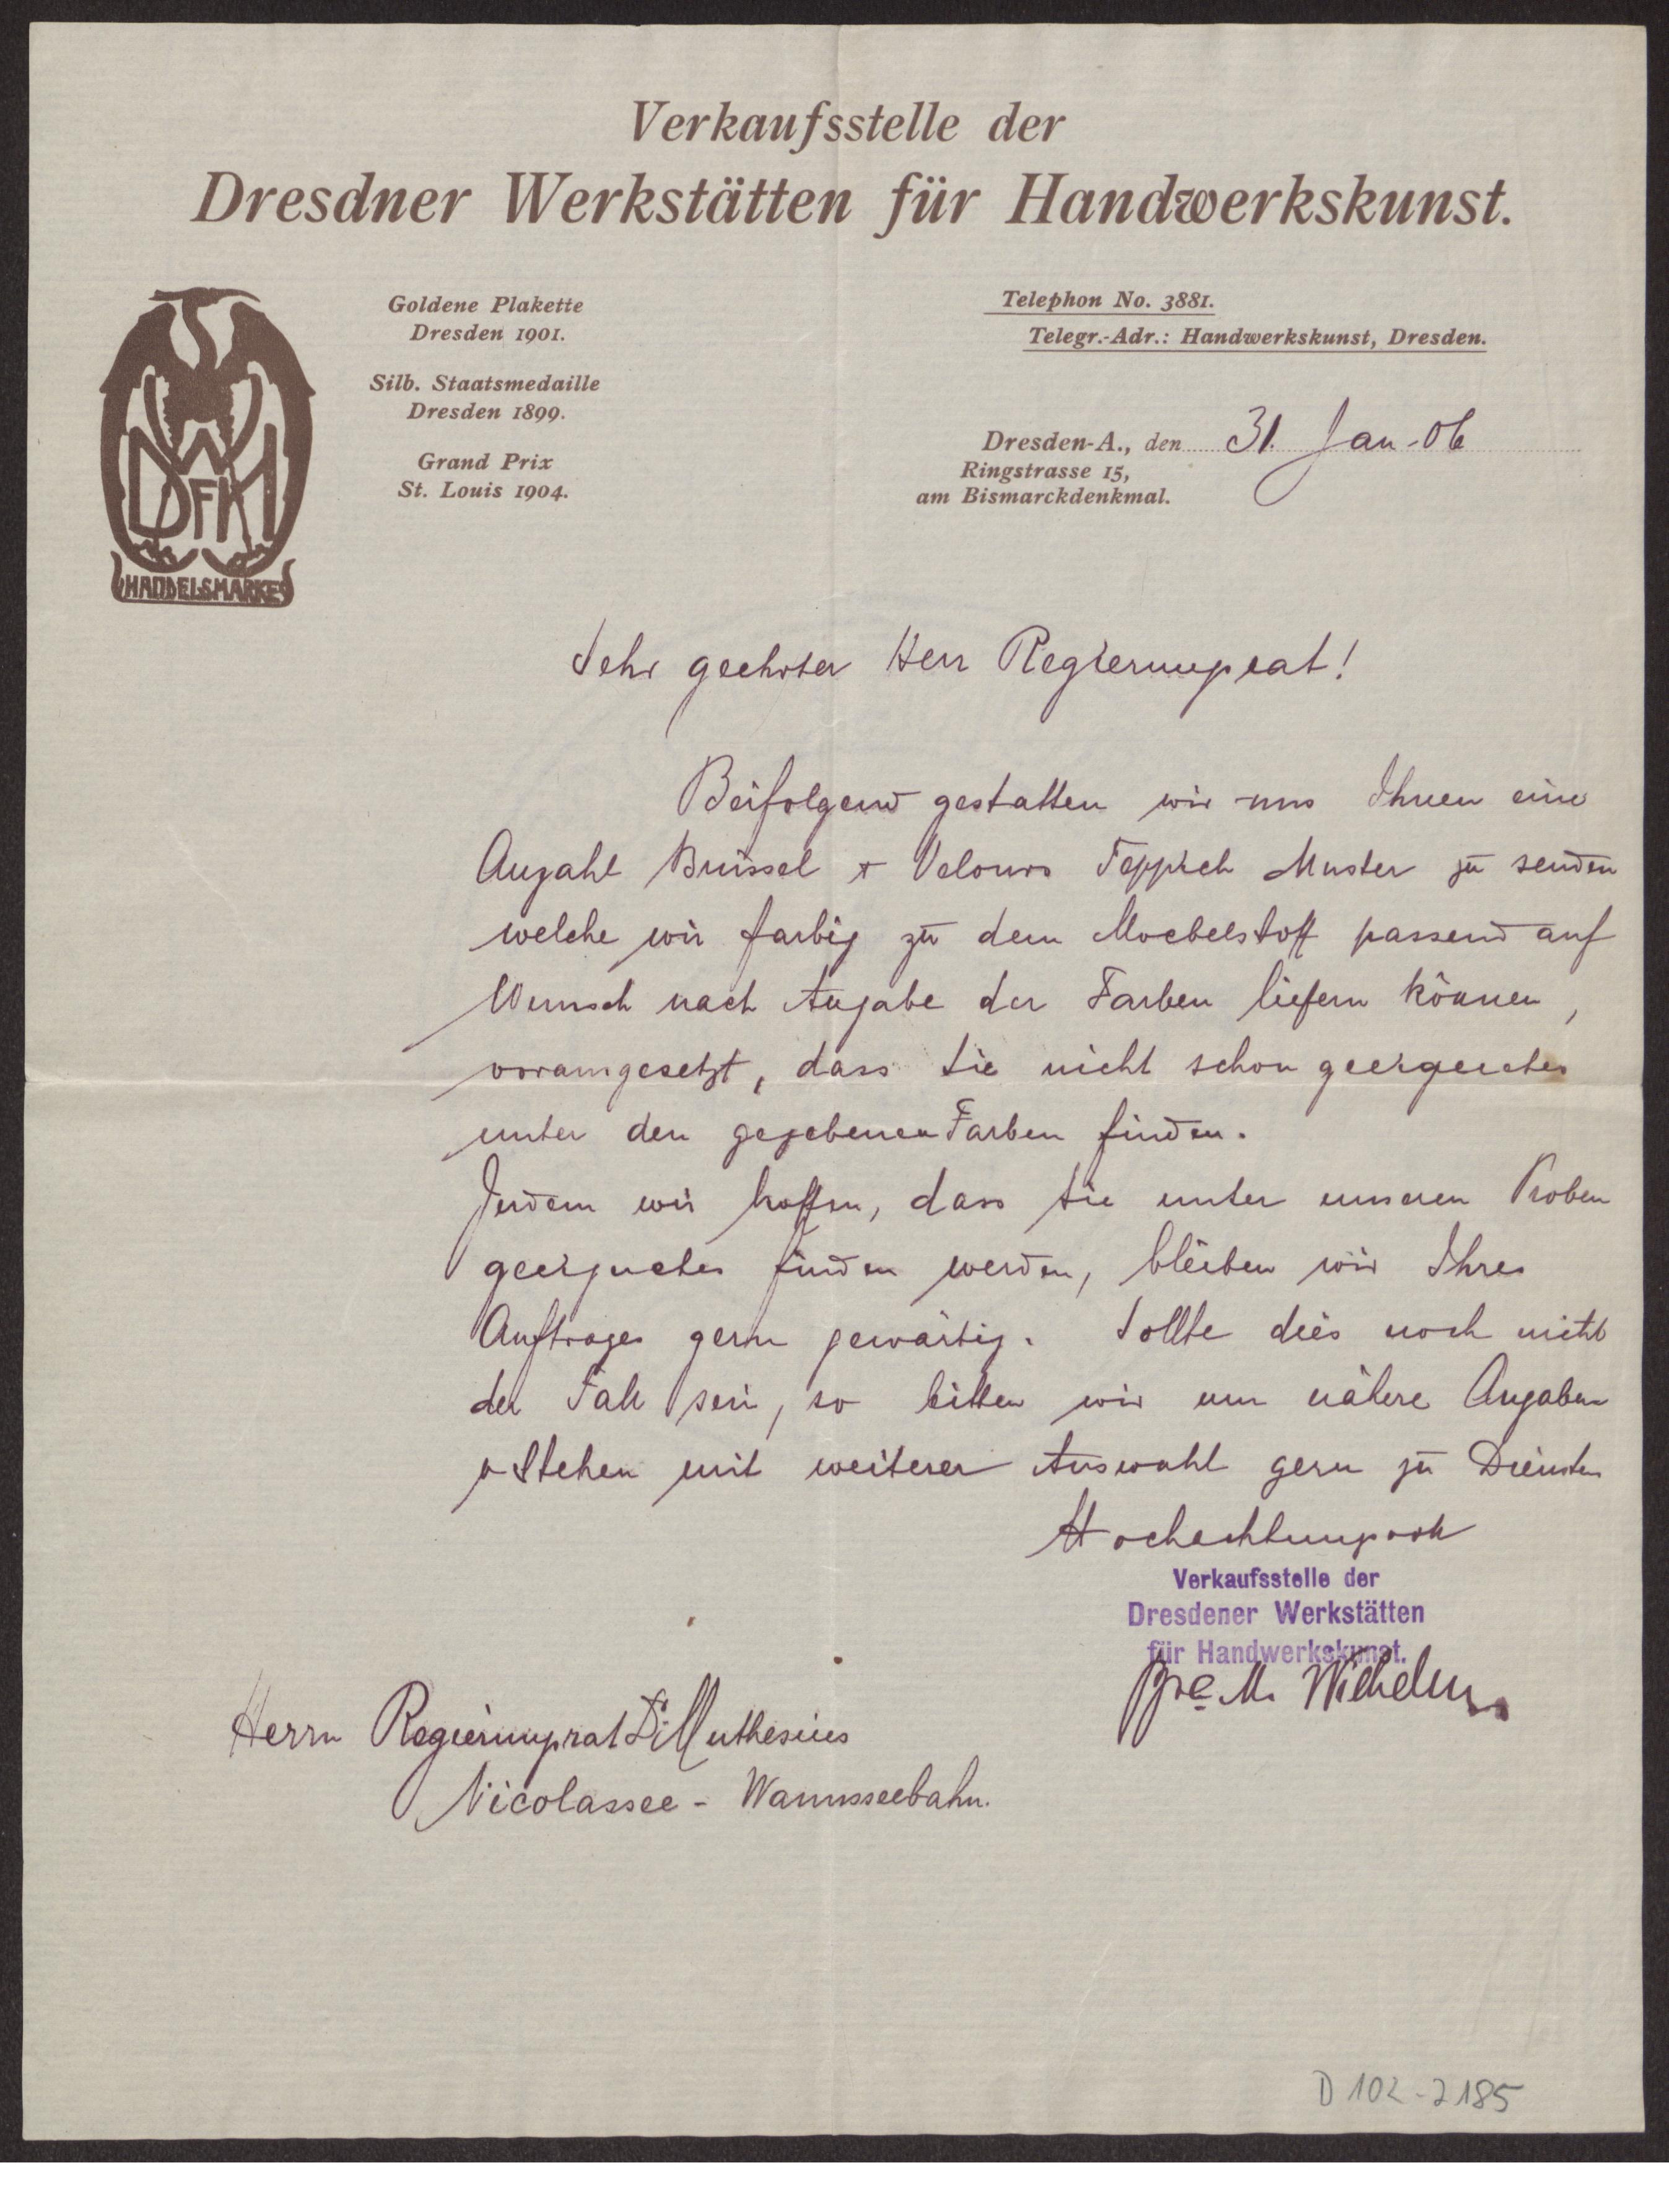 Verkaufsstelle der
Dresdner Werkstätten für Handwerkskunst.
DWFHK
HANDELSMARKE
Goldene Plakette
Dresden 1901.
Silb. Staatsmedaille
Dresden 1899.
Grand Prix
St. Louis 1904.
Telephon No. 3881.
Telegr.-Adr.: Handwerkskunst, Dresden.
Dresden-A., den 31. Jan. 06
Ringstrasse 15,
am Bismarckdenkmal.
Sehr geehrter Herr Regierungsrat!
Beifolgend gestatten wir uns Ihnen eine
Anzahl Brüssel + Velours Teppich Muster zu senden
welche wir farbig zu dem Moebelstoff passend auf
Wunsch nach Angabe der Farben liefern können,
vorausgesetzt, dass Sie nicht schon geeignetes
unter den gegebenen Farben finden.
Indem wir hoffen, dass Sie unter unseren Proben
geeignetes finden werden, bleiben wir Ihres
Auftrages gern gewärtig. Sollte dies noch nicht
der Fall sein, so bitten wir um nähere Angaben
+ stehen mit weiterer Auswahl gern zu Diensten
Hochachtungsvoll
Verkaufsstelle der
Dresdener Werkstätten
für Handwerkskunst.
M. Wilhelm
Herrn Regierungsrat Dr Muthesius
Nicolassee - Wannseebahn.
D 102-2185